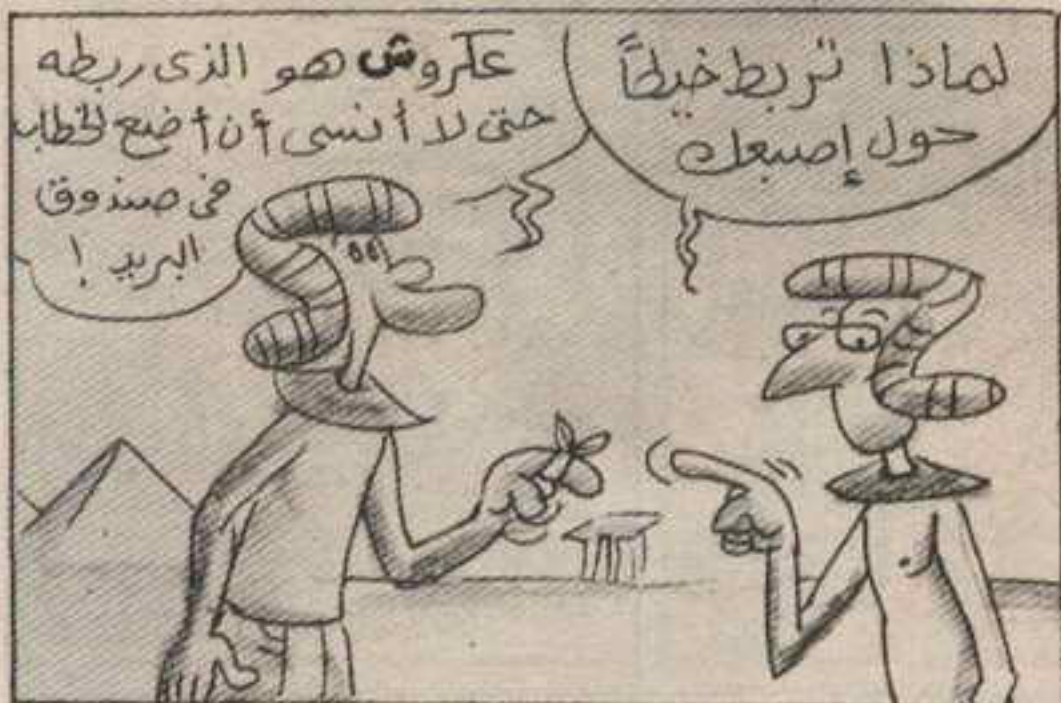 لماذا تربط خيطاً
حول إصبعك
عكروش هو الذى ربطه
حتى لا أنسى أن أضع الخطاب
فى صندوق
البريد !